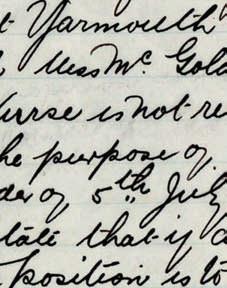 t Yarmouth
Miss Mc. Gold
Nurse is not re
he purpose of
der of 5th July
tate that if a
position is to